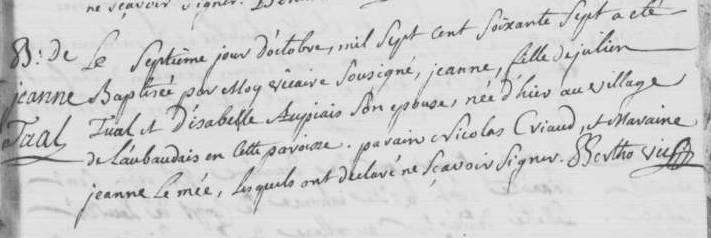 ne sçavoir signer.
B: de Le Septiême jour d'octobre, mil Sept cent Soixante Sept a eté
jeanne Baptisée par Moy vicaire Sousigné, jeanne, fille de julien
Tual Tual et D'isabelle Aupiais Son epouse, née d'hier au village
de Laubaudais en Cette paroisse. parain Nicolas Criaud, et Maraine
jeanne Le mée, Lesquels ont declaré ne Sçavoir Signer. Bertho vic